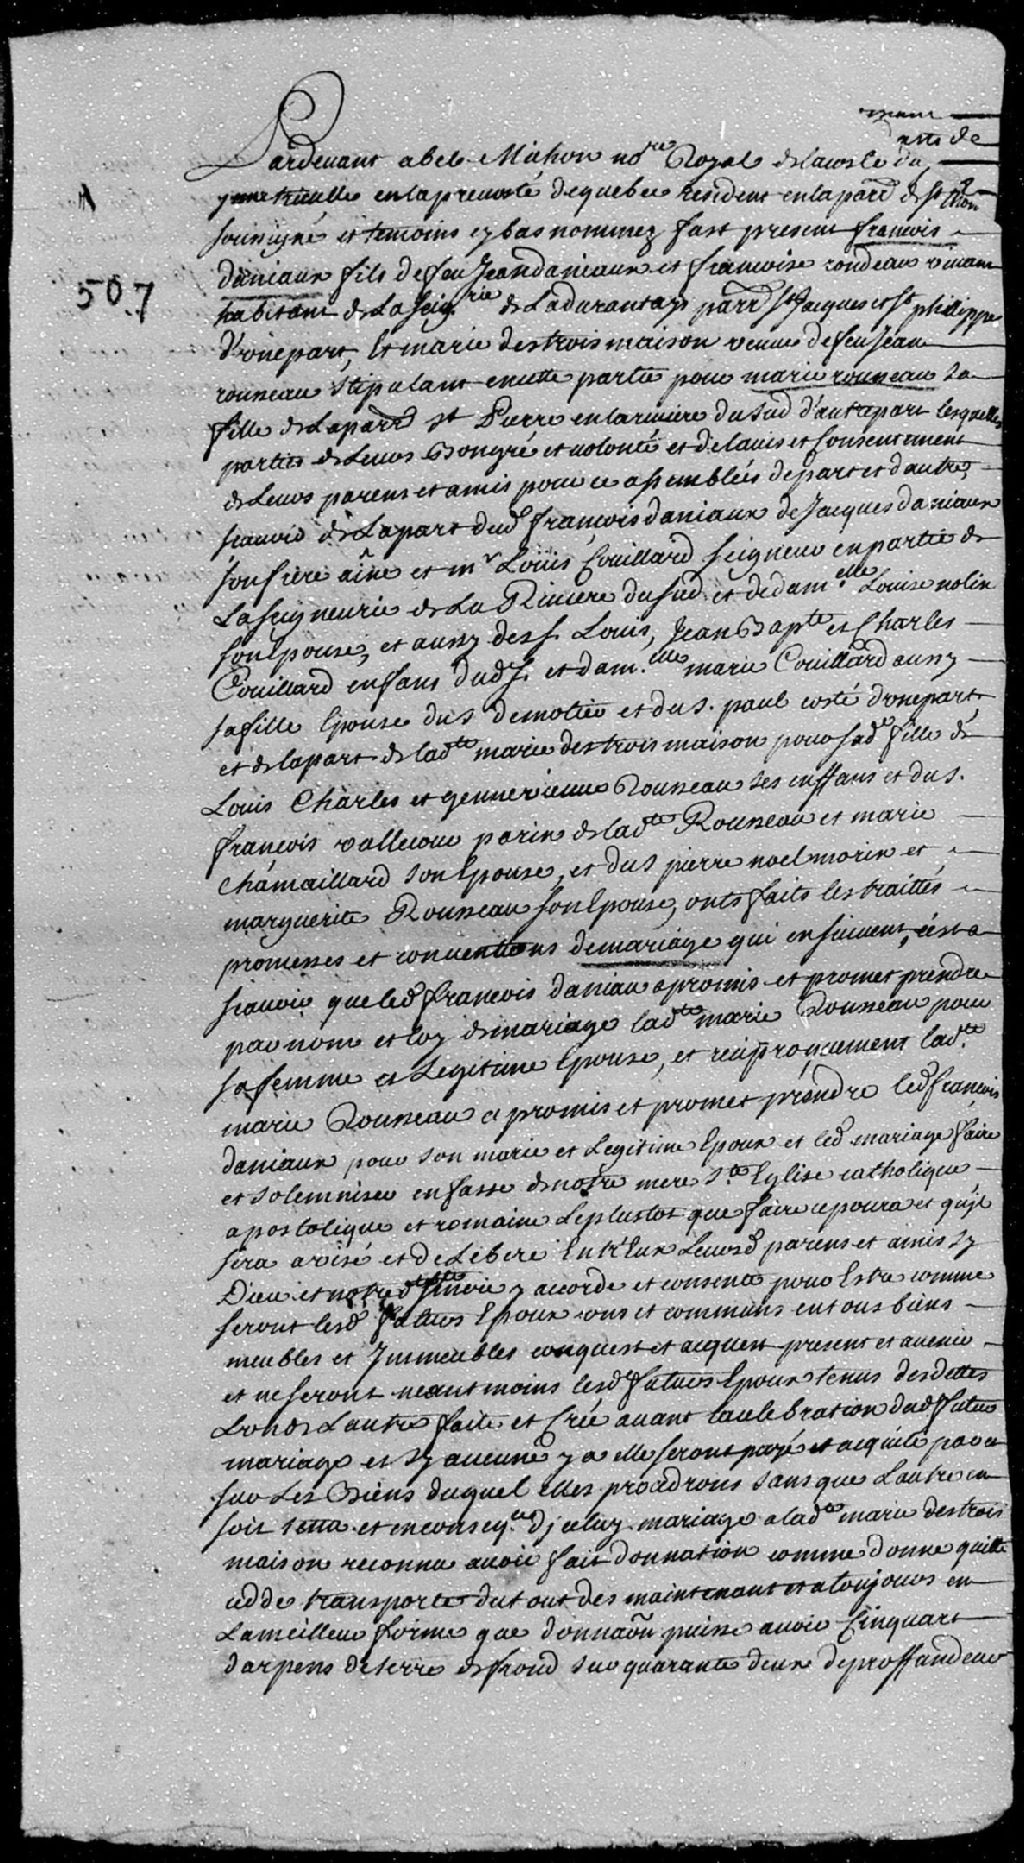 arts de
Pardevant abel Michon no.re Royal de la coste du
en la prevosté de quebec resident en la parr de st thom
sousigné et temoins cy bas nommez fust present francois
daniaux fils de feu Jean daniaux et francoise rondeau vivant
habitant de La Seig.rie de La durantaye parr St Jacques et St philippe
A
507
d'une part, Et marie destroismaison veuve de feu Jean
rousseau stipulant en cette partie pour marie rousseau sa
fille de La parr st Pierre en la riviere du Sud d'autrepart lesquelles
parties de Leurs Bongré et volonté et de lavis et Consentement
de Leurs parens et amis pour ce assemblés de part et dautre,
scavoir de La part dud francois daniaux de Jacques daniaux
son frere aîné et mr Louis Couillard Seigneur en partie de
La seigneurie de La Riviere du sud et de dam.elle Louise nolin
son Epouse, et aussy des S. Louis, Jean Bapte et Charles
Couillard enfans dud S. et dam.elle marie Couillard aussy
sa fille Epouse du S demolier et du S. paul costé d'unepart
et de la part de ladte marie destroismaison pour sade fille de
Louis Charles et genneviemve Rousseau ses enffans et du S.
francois vallecour parin de ladte Rousseau et marie
chamaillard son Epouse, et du S pierre noel morin et
marguerite Rousseau son Epouse, onts faits les traittés
promesses et conventions de mariage qui ensuivent, cest a
scavoir que led francois daniau a promis et promet prendre
par nom et loy de mariage ladte marie Rousseau pour
sa femme et Legitime Epouse, et reciproquement ladte
marie Rousseau a promis et promet prendre led francois
daniaux pour son marie et Legitime Epoux et led mariage faire
et solemniser en fasse de notre mere Ste Eglise catholique
apostolique et romaine Le plustot que faire ce poura et quil
sera avisé et deLiberé Entr'Eux Leursd parens et amis sy
Dieu et notred mere y accorde et consente pour Estre comme
seront lesd futurs Epoux uns et communs en tous biens
meubles et Immeubles conquest et acquest present et avenir
et ne seront neantmoins lesd futurs Epoux tenus des dettes
Lun de Lautre faite et Crée avant la celebration dud futur
mariage et sy aucune y a elle seront payé et aquité par et
sur Les Biens duquel elles proxdrons sans que Lautre en
soit tenu et en conseq.ce diceluy mariage a ladte marie destrois
maison reconnu avoir fait donnation comme donne quitte
cedde transporte du tout des maintenant et a toujours en
La meilleur forme que donnaõn puisse avoir Cinquart
darpens de terre de frond sur quarante deux de proffundeur